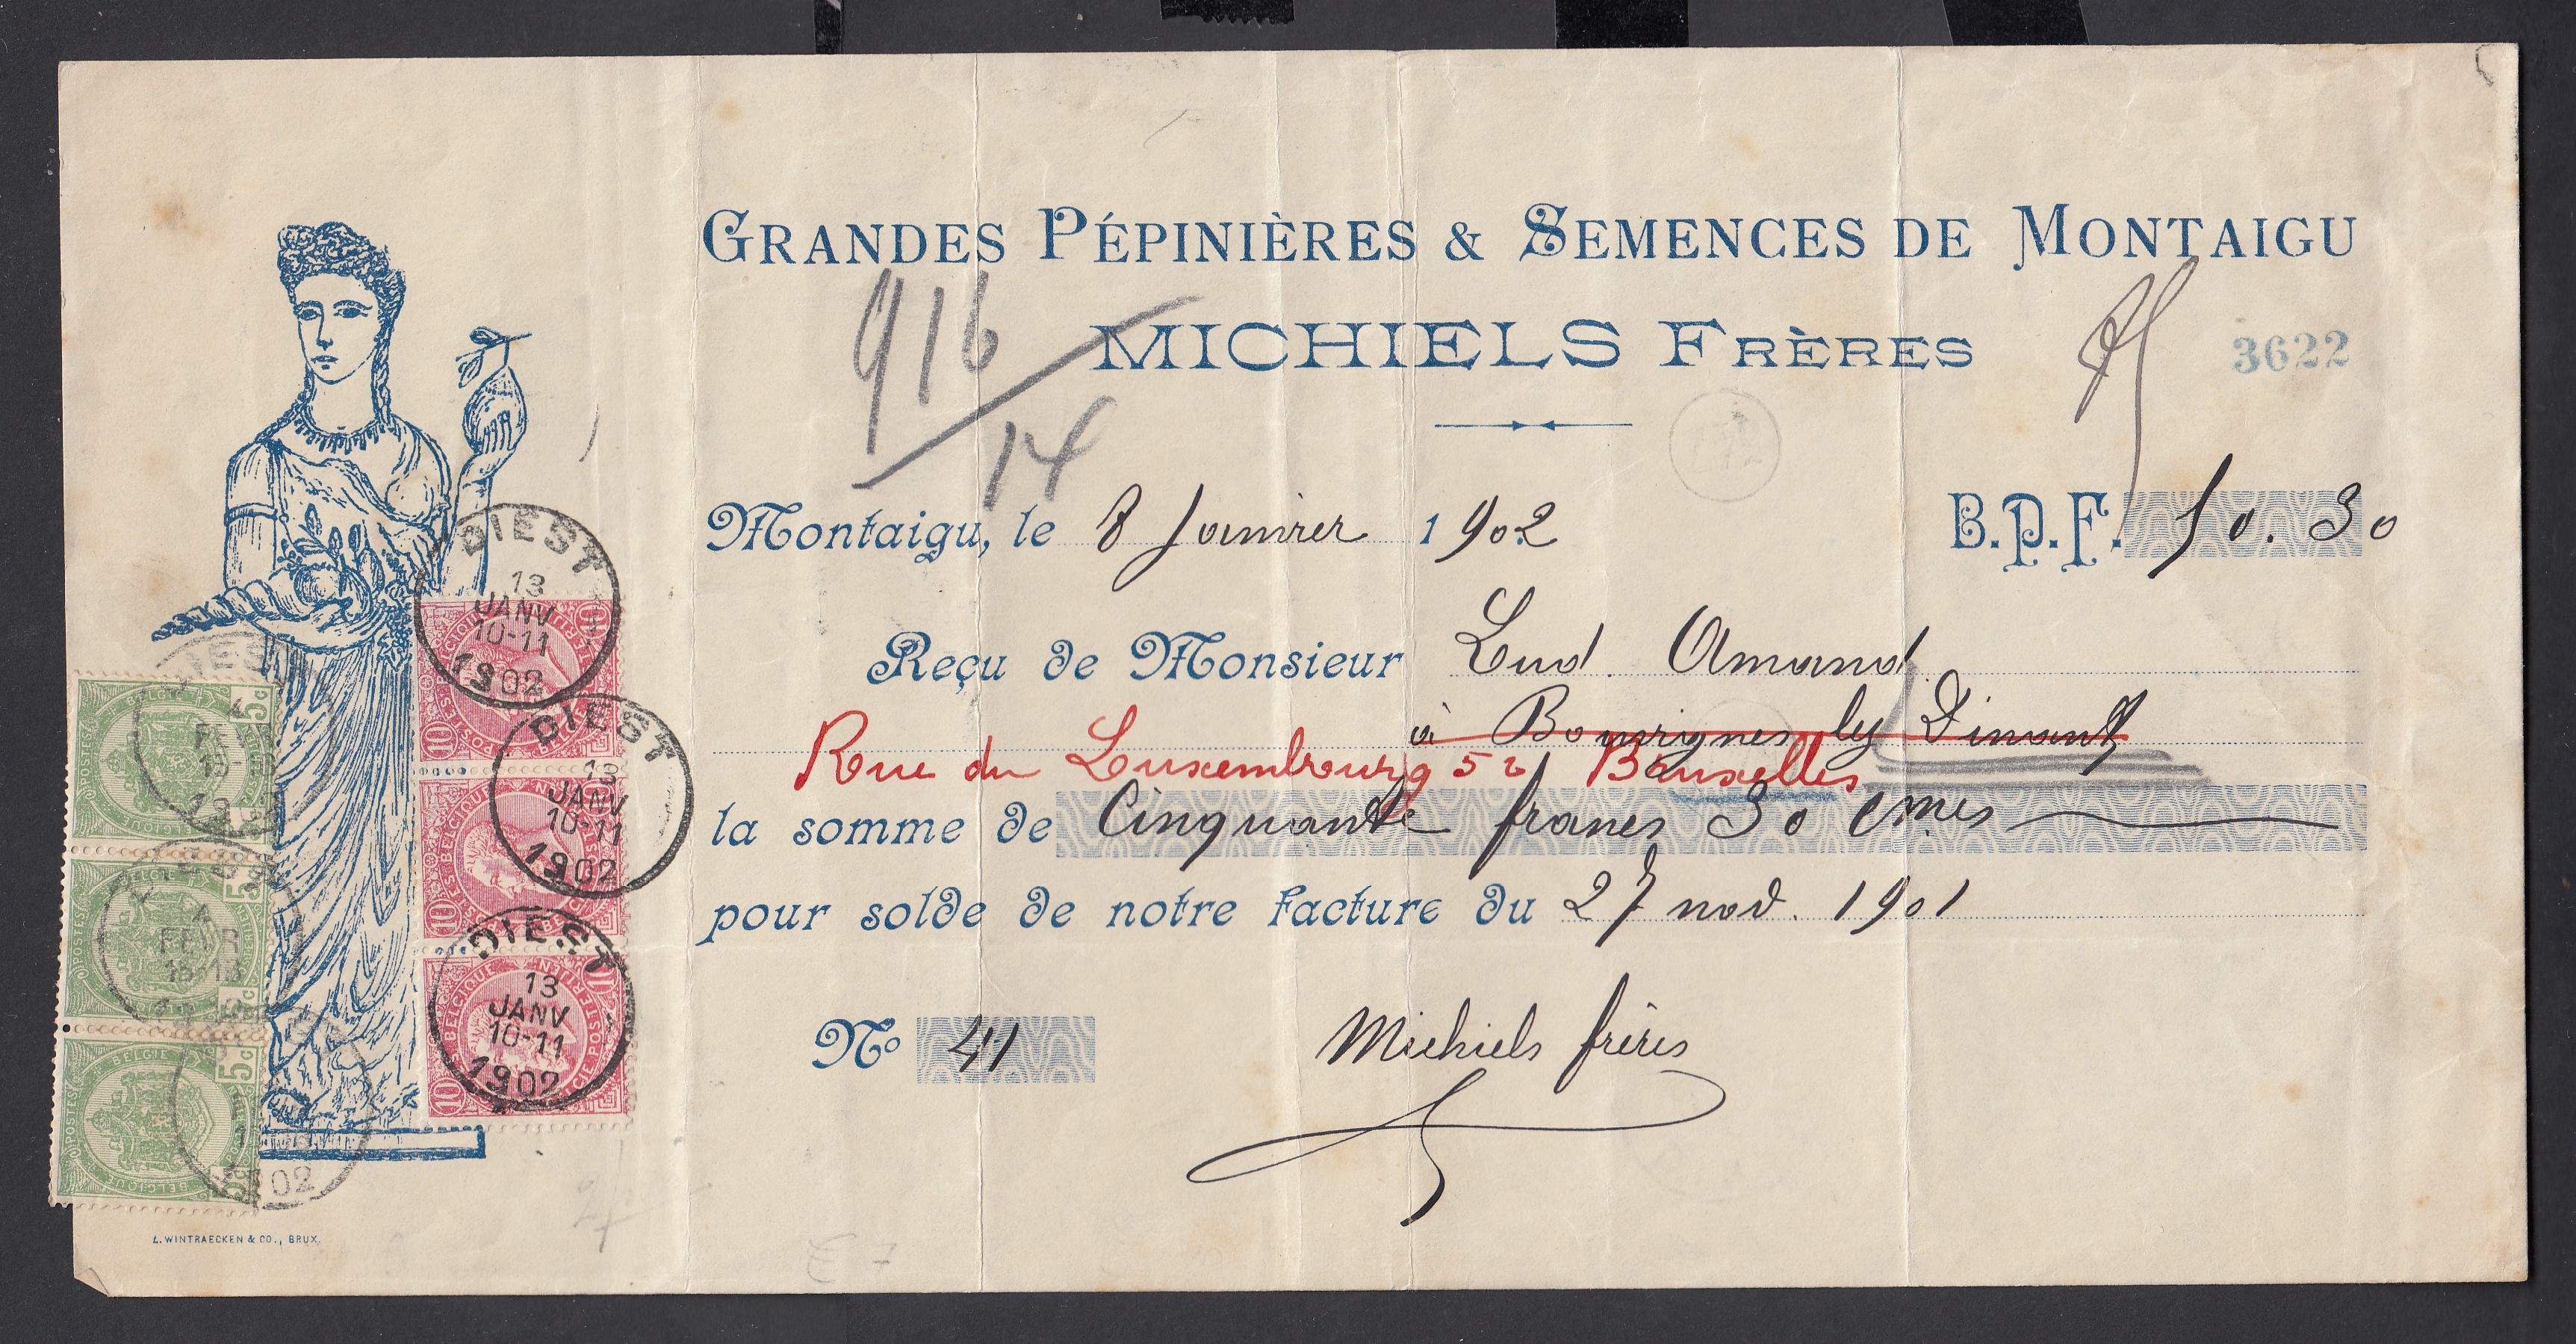 GRANDES PÉPINIÈRES & SEMENCES DE MONTAIGU
MICHIELS FRÈRES
916
14
3622
Montaigu, le 8 Janvier 1902
B.P.F. 50.30
Reçu de Monsieur Lud. Amand
à Bouvignes lez Dinant
Rue du Luxembourg 52 Bruxelles
la somme de Cinquante francs 30 cmes
pour solde de notre facture du 27 nov. 1901
No 41
Michiels frères
DIEST
13
JANV
10-11
1902
DIEST
13
JANV
10-11
1902
DIEST
13
JANV
10-11
1902
10 POSTES BELGIQUE
5c POSTES BELGIQUE BELGIE
4
FEVR
1902
L. WINTRAECKEN & CO., BRUX.